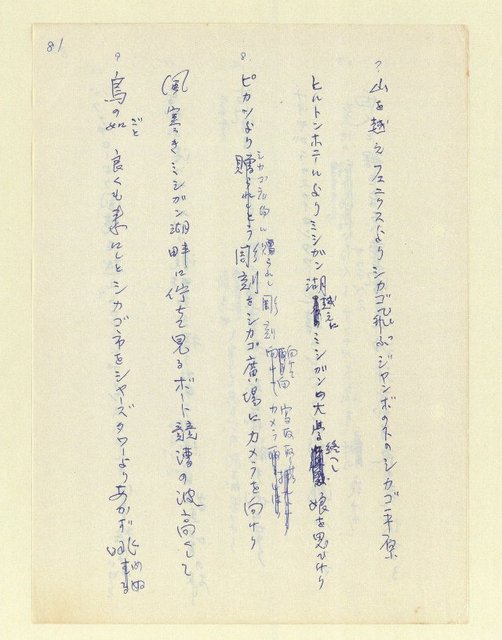 81
7
山を越えフェニクスよりシカゴ飛ぶジャンボの下のシカゴ平原
ヒルトンホテルよりミシガン湖越えにミシガンの大學終へし娘を思ひけり
8
シカゴ市に贈られし彫刻
ピカソより贈られしとう彫刻をシカゴ廣場にカメラを向けり
風寒きミシガン湖畔に佇ちて見るボート競漕の波高くして
9
鳥の如 良くも来にしとシカゴ市をシヤーズタワーよりあかず眺めぬ
ごと